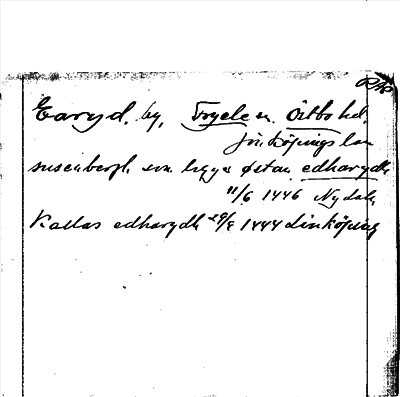 Earyd. by, Tryele sn. Östbo hd.
Jönköpings län
susenbergh. som ligger östan edharydh
11/6 1446 Nydala
Kallas edharydh 29/8 1444 Linköping